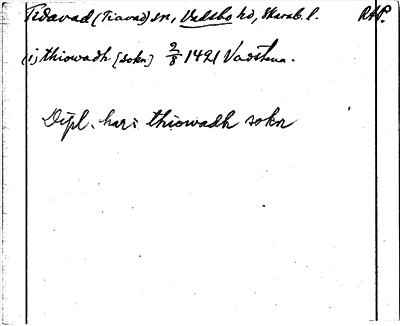 Tidavad (Tiavad) sn, Vadsbo hd, Skarab. l. RAP.
(i) thiowadh [sokn] 2/8 1421 Vadstena.
Dipl. har: thiowadh sokn